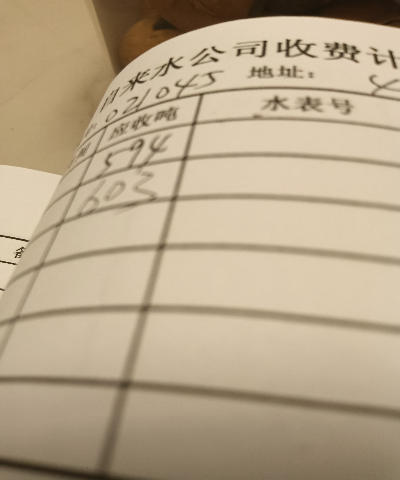 自来水公司收费计
021045 地址：
应收吨 水表号
594
603